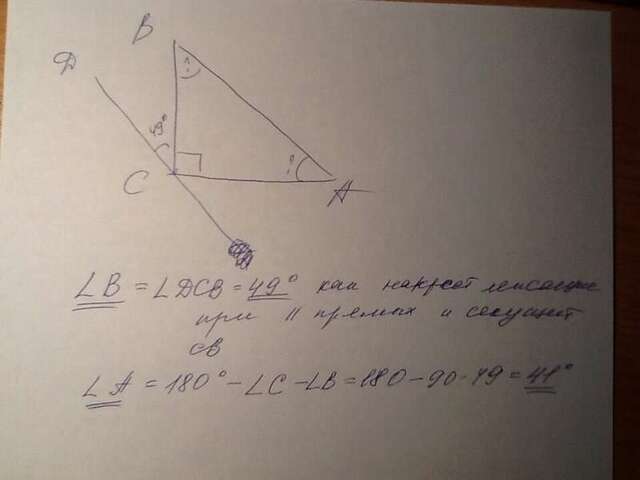 B
D
49°
?
?
C
A
∠B = ∠DCB = 49° как накрест лежащие
при || прямых и секущей
CB
∠A = 180° - ∠C - ∠B = 180 - 90 - 49 = 41°